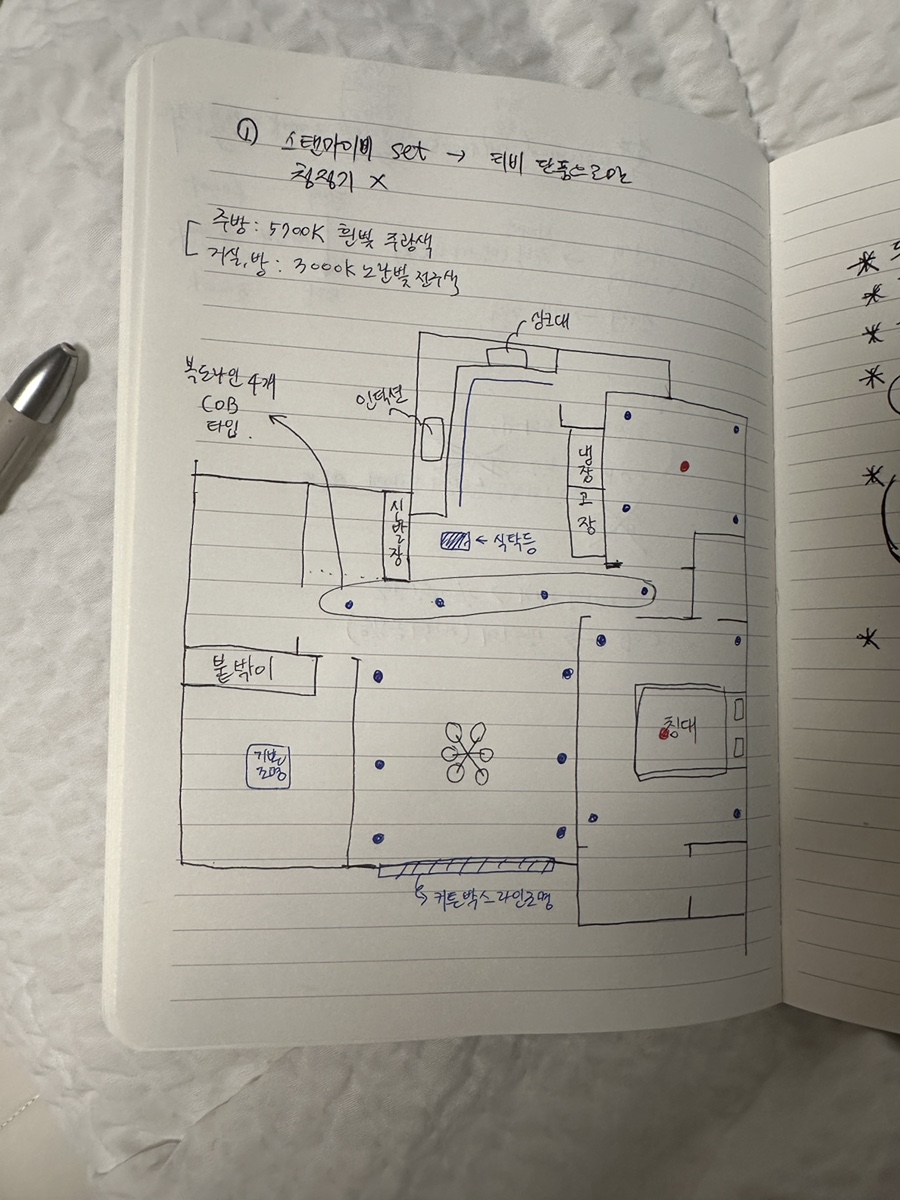 ① 스탠바이미 set → 티비 단품으로만
청정기 X
주방 : 5700K 흰빛 주광색
거실, 방 : 3000K 노란빛 전구색
싱크대
복도라인 4개
COB
타입.
인덕션
냉장고장
신발장
← 식탁등
붙박이
침대
기본
조명
커튼박스라인조명